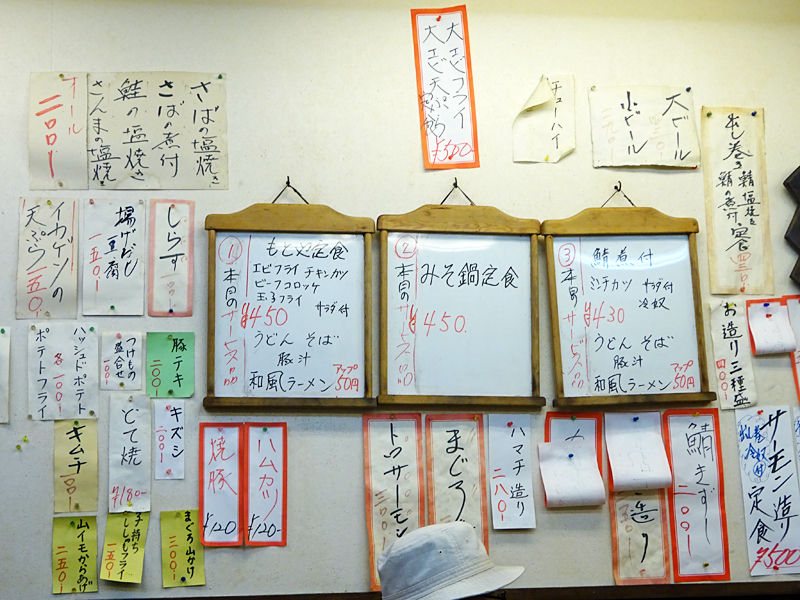 大エビフライ
大エビ天ぷら
定食
¥500
さばの塩焼き
さばの煮付
鮭の塩焼き
さんまの塩焼
オール
二〇〇
チューハイ
大ビール
小ビール
出し巻き
鯖塩焼き
鯖の煮付
定食
四三〇
イカゲソの
天ぷら
一五〇
揚げだし
豆腐
一五〇
しらす
一〇〇
① もとや定食
本日のサービス品
エビフライ チキンカツ
ビーフコロッケ
玉子フライ
サラダ付
¥450
うどん そば
豚汁
和風ラーメン
アップ
50円
② みそ鍋定食
本日のサービス品
¥450.
③ 鯖煮付
本日のサービス品
ミンチカツ サラダ付
冷奴
¥430
うどん そば
豚汁
和風ラーメン
アップ
50円
お造り三種盛
四〇〇
ハッシュドポテト
ポテトフライ
各一〇〇
つけもの
盛合せ
一〇〇
豚テキ
二〇〇
キムチ
一〇〇
とて焼
¥180-
キズシ
二〇〇
焼豚
¥120
ハムカツ
¥120-
トロサーモン
三〇〇
まぐろ
ハマチ造り
二八〇
造り
鯖きずし
二〇〇
サーモン造り
定食
¥500
山イモからあげ
二五〇
子持ち
ししゃもフライ
一五〇
まぐろ山かけ
三〇〇